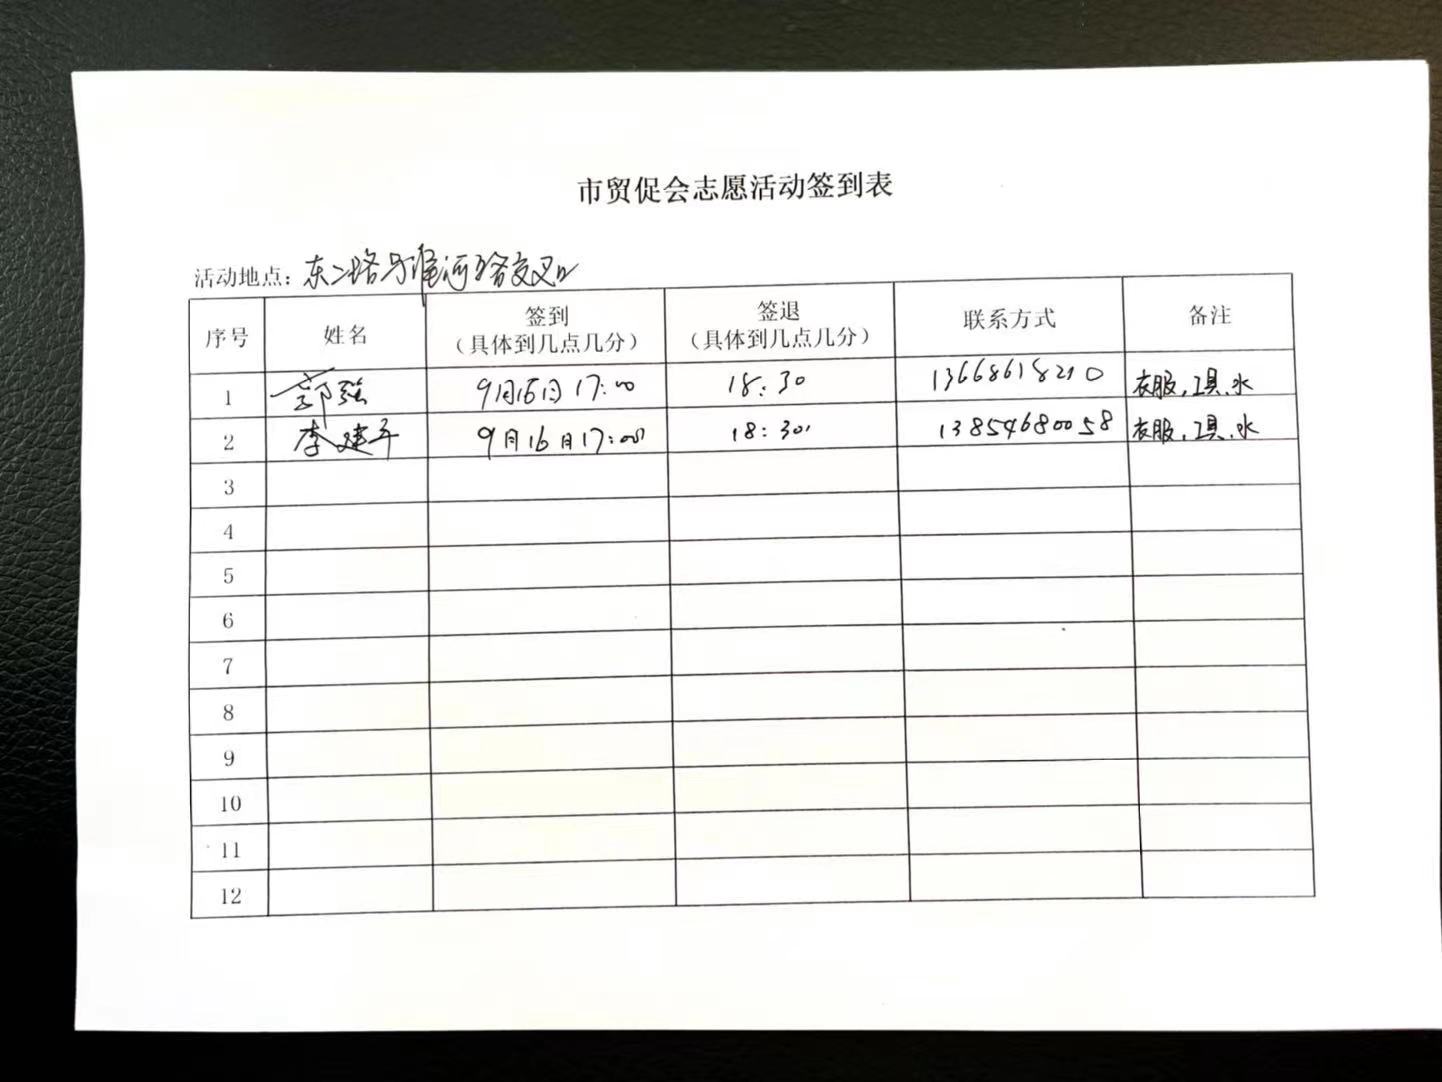 市贸促会志愿活动签到表
活动地点：东二路与淮河路交叉口
序号 姓名 签到（具体到几点几分） 签退（具体到几点几分） 联系方式 备注
1 郭强 9月16日 17:00 18:30 13668618210 衣服，工具、水
2 李建平 9月16日 17:00 18:30 13854680058 衣服，工具、水
3
4
5
6
7
8
9
10
11
12